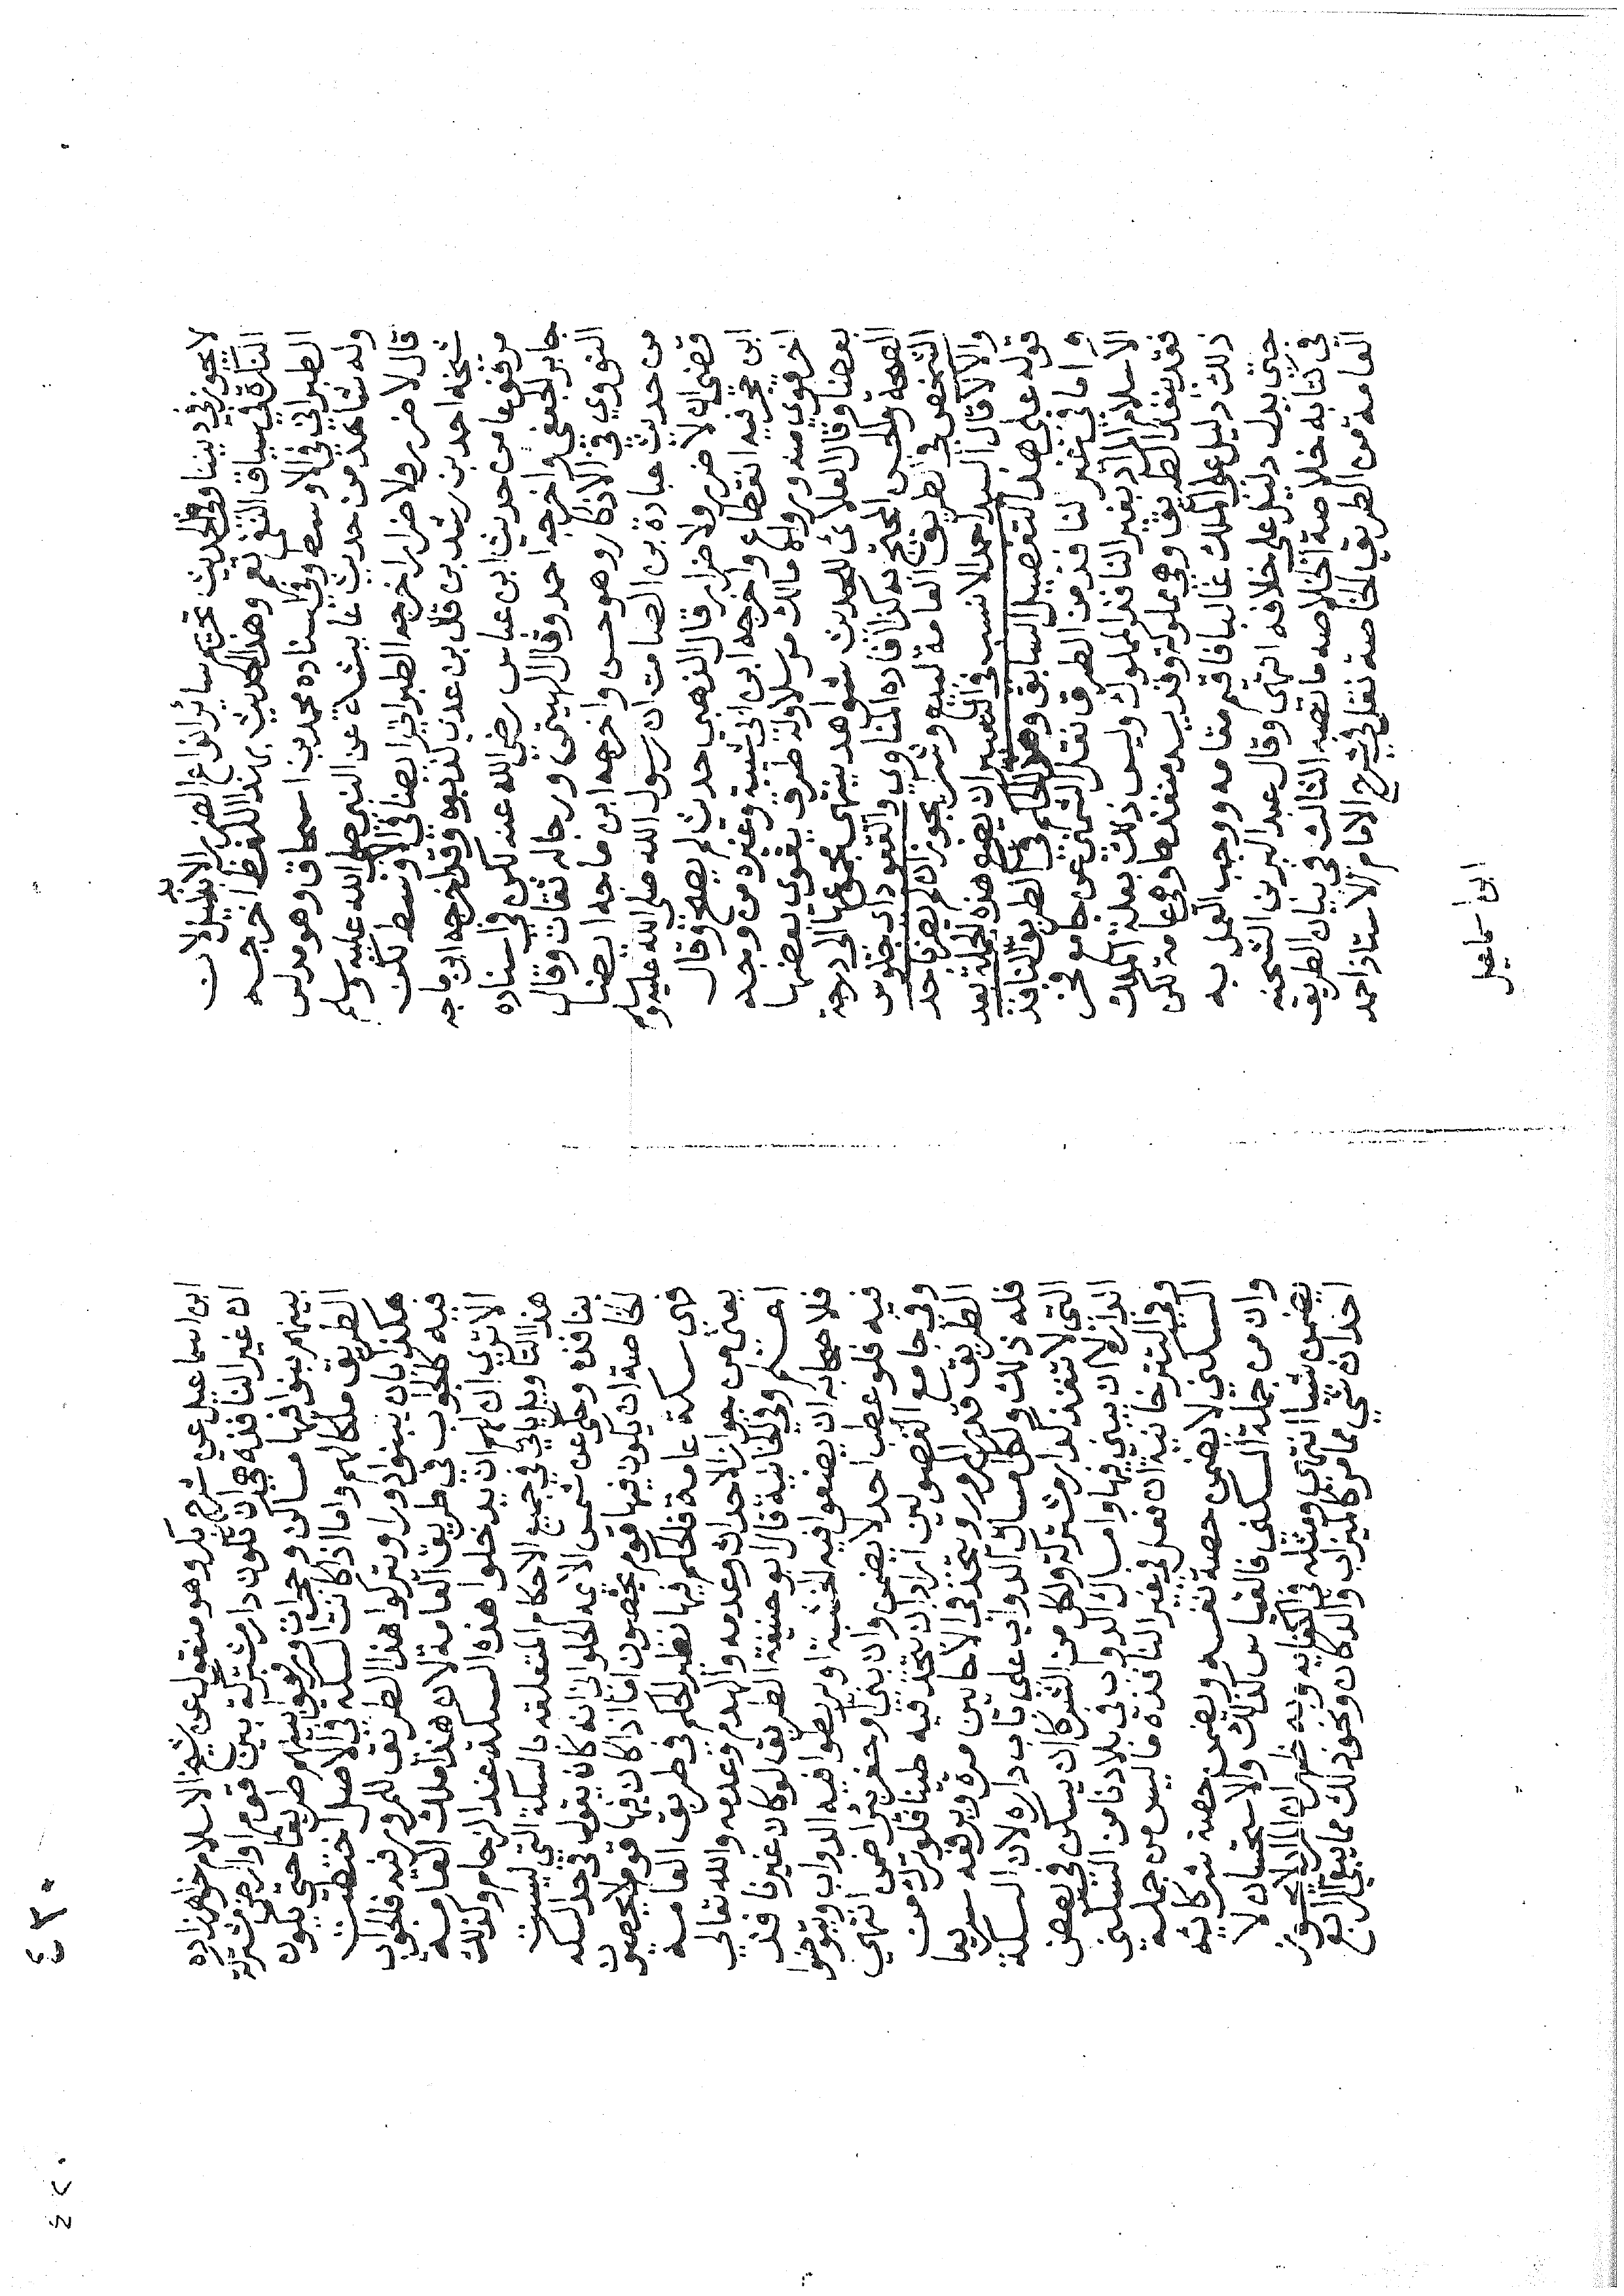 لا يجوز في ديننا وفي الحديث تحريم سائر انواع الضرر الا بدليل لان
النكرة في سياق النفي تعم وهذا الحديث بهذا اللفظ اخرجه
الطبراني في الاوسط وفي اسناده محمد بن اسحاق وهو مدلس
وله شاهد من حديث عايشة عن النبي صلى الله عليه وسلم
قال لا ضرر ولا ضرار اخرجه الطبراني ايضا في الاوسط لكن
شيخه احمد بن رشدبن قال بن عدي كذبوه وقد اخرجه ابن ماجه
مرفوعا من حديث ابن عباس رضي الله عنه لكن في اسناده
جابر الجعفي واخرجه احمد وقال الهيتمي ورجاله ثقات وقال
النووي في الاذكار وهو حسن واخرجه ابن ماجه ايضا
من حديث عبادة بن الصامت ان رسول الله صلى الله عليه وسلم
قضى ان لا ضرر ولا ضرار قال الذهبي حديث لم يصح وقال
ابن حجر فيه انقطاع واخرجه ابن ابي شيبة وغيره من وجه
اخر اقوى منه ورواه مالك مرسلا وله طرق يقوى بعضها
بعضا وقال العلائى للحديث شواهد ينتهى مجموعها الى درجة
الصحة والحسن المحتج به كذا افاده المناوي والقعود اى جلوس
الشخص في الطريق العامة لبيع وشرا يجوز ان لم يضر باحد
والا لا قال السيد احمد الانسب في التعبير ان يضع هذه الجملة بعد
قوله على هذا التفصيل السابق وهو الحكم في الطريق النافذ
و اما في غير النافذ من الطرق نقل الشمني عن جامع فخر
الاسلام المراد بغير النافذ المملوك وليس ذلك بعلة الملك
فقد ينفذ الطريق وهي مملوكة وقد يسد منفذها وهي عامة لكن
ذلك دليل على الملك غالبا فاقيم مقامه ووجب العمل به
حتى يدل دليل على خلافه انتهى وقال عبد البر بن الشحنه
في كتابه خلاصة الخلاصه ما نصه الثالث في بيان الطريق
العامة من الطريق الخاصة نقل في شرح الامام الاستاذ احمد
ابن اسماعيل
٤٢٠
ابن اسماعيل عن شرح بكر وهو منقول عن شيخ الاسلام خواهر زاده
ان غير النافذه هي ان تكون دار مشتركة بين قوم او ارض مشتركة
بينهم بنوا فيها مساكن وحجرات ورفعوا بينهم طريقا حتى يكون
الطريق ملكا لهم واما اذا كانت السكه في الاصل اختطت
هكذا بان يبنوا دورا ويتركوا هذا الطريق للمرور فيه فالجواب
فيه كالجواب في طريق العامة لان هذا ملك العامة
الا ترى ان لهم ان يدخلوا هذه السكة عند الزحام وكذلك
هذا التاويل ياتي في جميع الاحكام المتعلقه بالسكة التي ليست
بنافذه وحكي عن شمس الايمه الحلوانى انه كان يقول في حد السكه
الخاصة ان يكون فيها قوم يحصون اما اذا كان فيها قوم لا يحصون
فهى سكة عامة فالحكم فيها نظير الحكم في طريق العامه
يعنى من جواز الاحداث وعدمه والهدم وعدمه والله تعالى
اعلم وفي الخانية قال ابو حنيفة الطريق لو كان غير نافذ
فلاصحابه ان يضعوا فيه الخشبة او يربطوا فيه الدواب ويتوضوا
فيه فلو عطب احد لا يضمن وان بنى او حفر بيرا ضمن انتهى
وفي جامع الفصولين اراد ان يتخذ فيه طينا فلو ترك من
الطريق قدر المرور ويتخذ في الاحايين مرة ويرفعه سريعا
فله ذلك ولكل امساك الدواب على باب داره لان السكة
التى لا تنفذ كدار مشتركة ولكل من الشركا ان يسكن في بعض
الدار لا ان يبنى فيها وامساك الدواب في بلادنا من السكنى
وفي التترخانية ان فعل في غير النافذه ما ليس من جملة
السكنى لا يضمن حصة نفسه ويضمن حصة شركايه
وان من جملة السكنى فالقياس كذلك والاستحسان لا
يضمن شيا انتهى ومثله في الكفايه وبه ظهر ان المراد لا يجوز
احداث شي مما مر كالميزاب والدكان ونحو ذلك مما يبقى اربع
٤٢٠